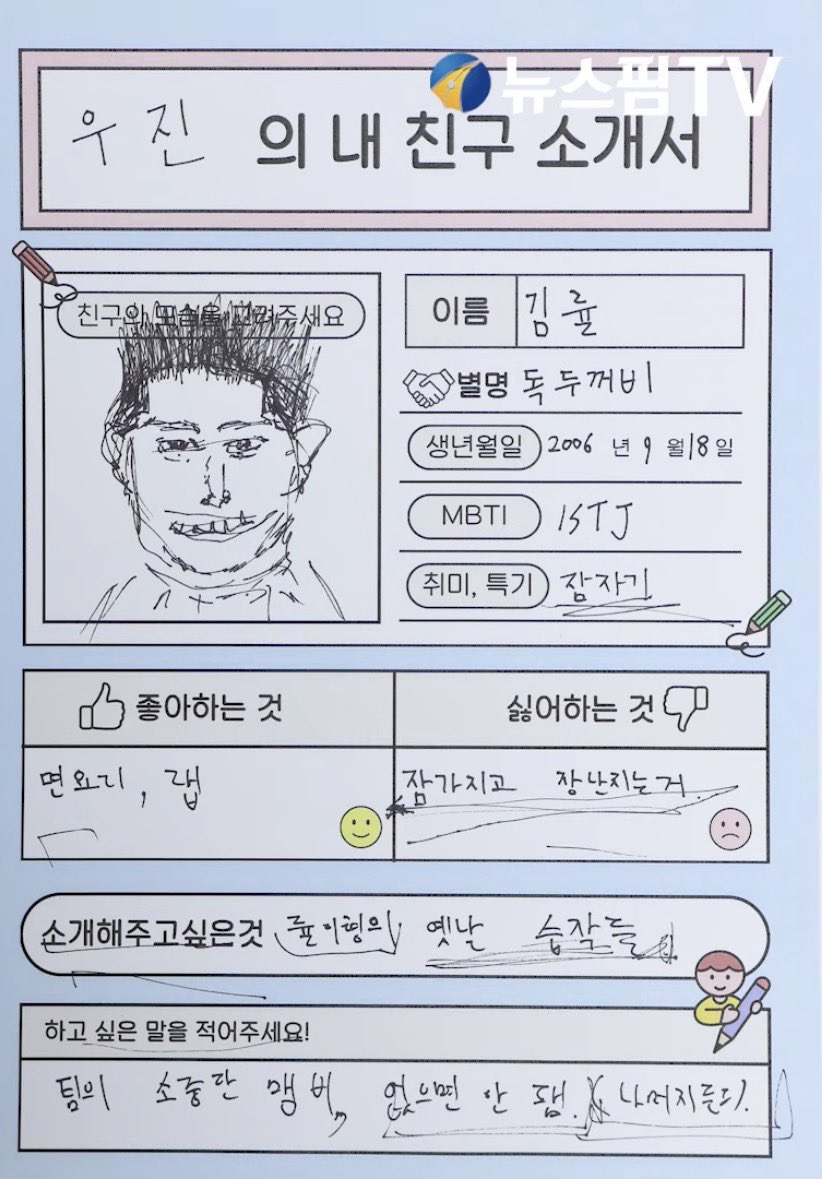 뉴스핌TV
우진 의 내 친구 소개서
친구의 모습을 그려주세요
이름 김륲
별명 독두꺼비
생년월일 2006 년 9 월 18 일
MBTI ISTJ
취미, 특기 잠자기
좋아하는 것
싫어하는 것
면요리, 랩
잠가지고 장난치는거.
소개해주고싶은것 륲이형의 옛날 습작들
하고 싶은 말을 적어주세요!
팀의 소중한 맴버, 없으면 안 됌. 나머지든디.